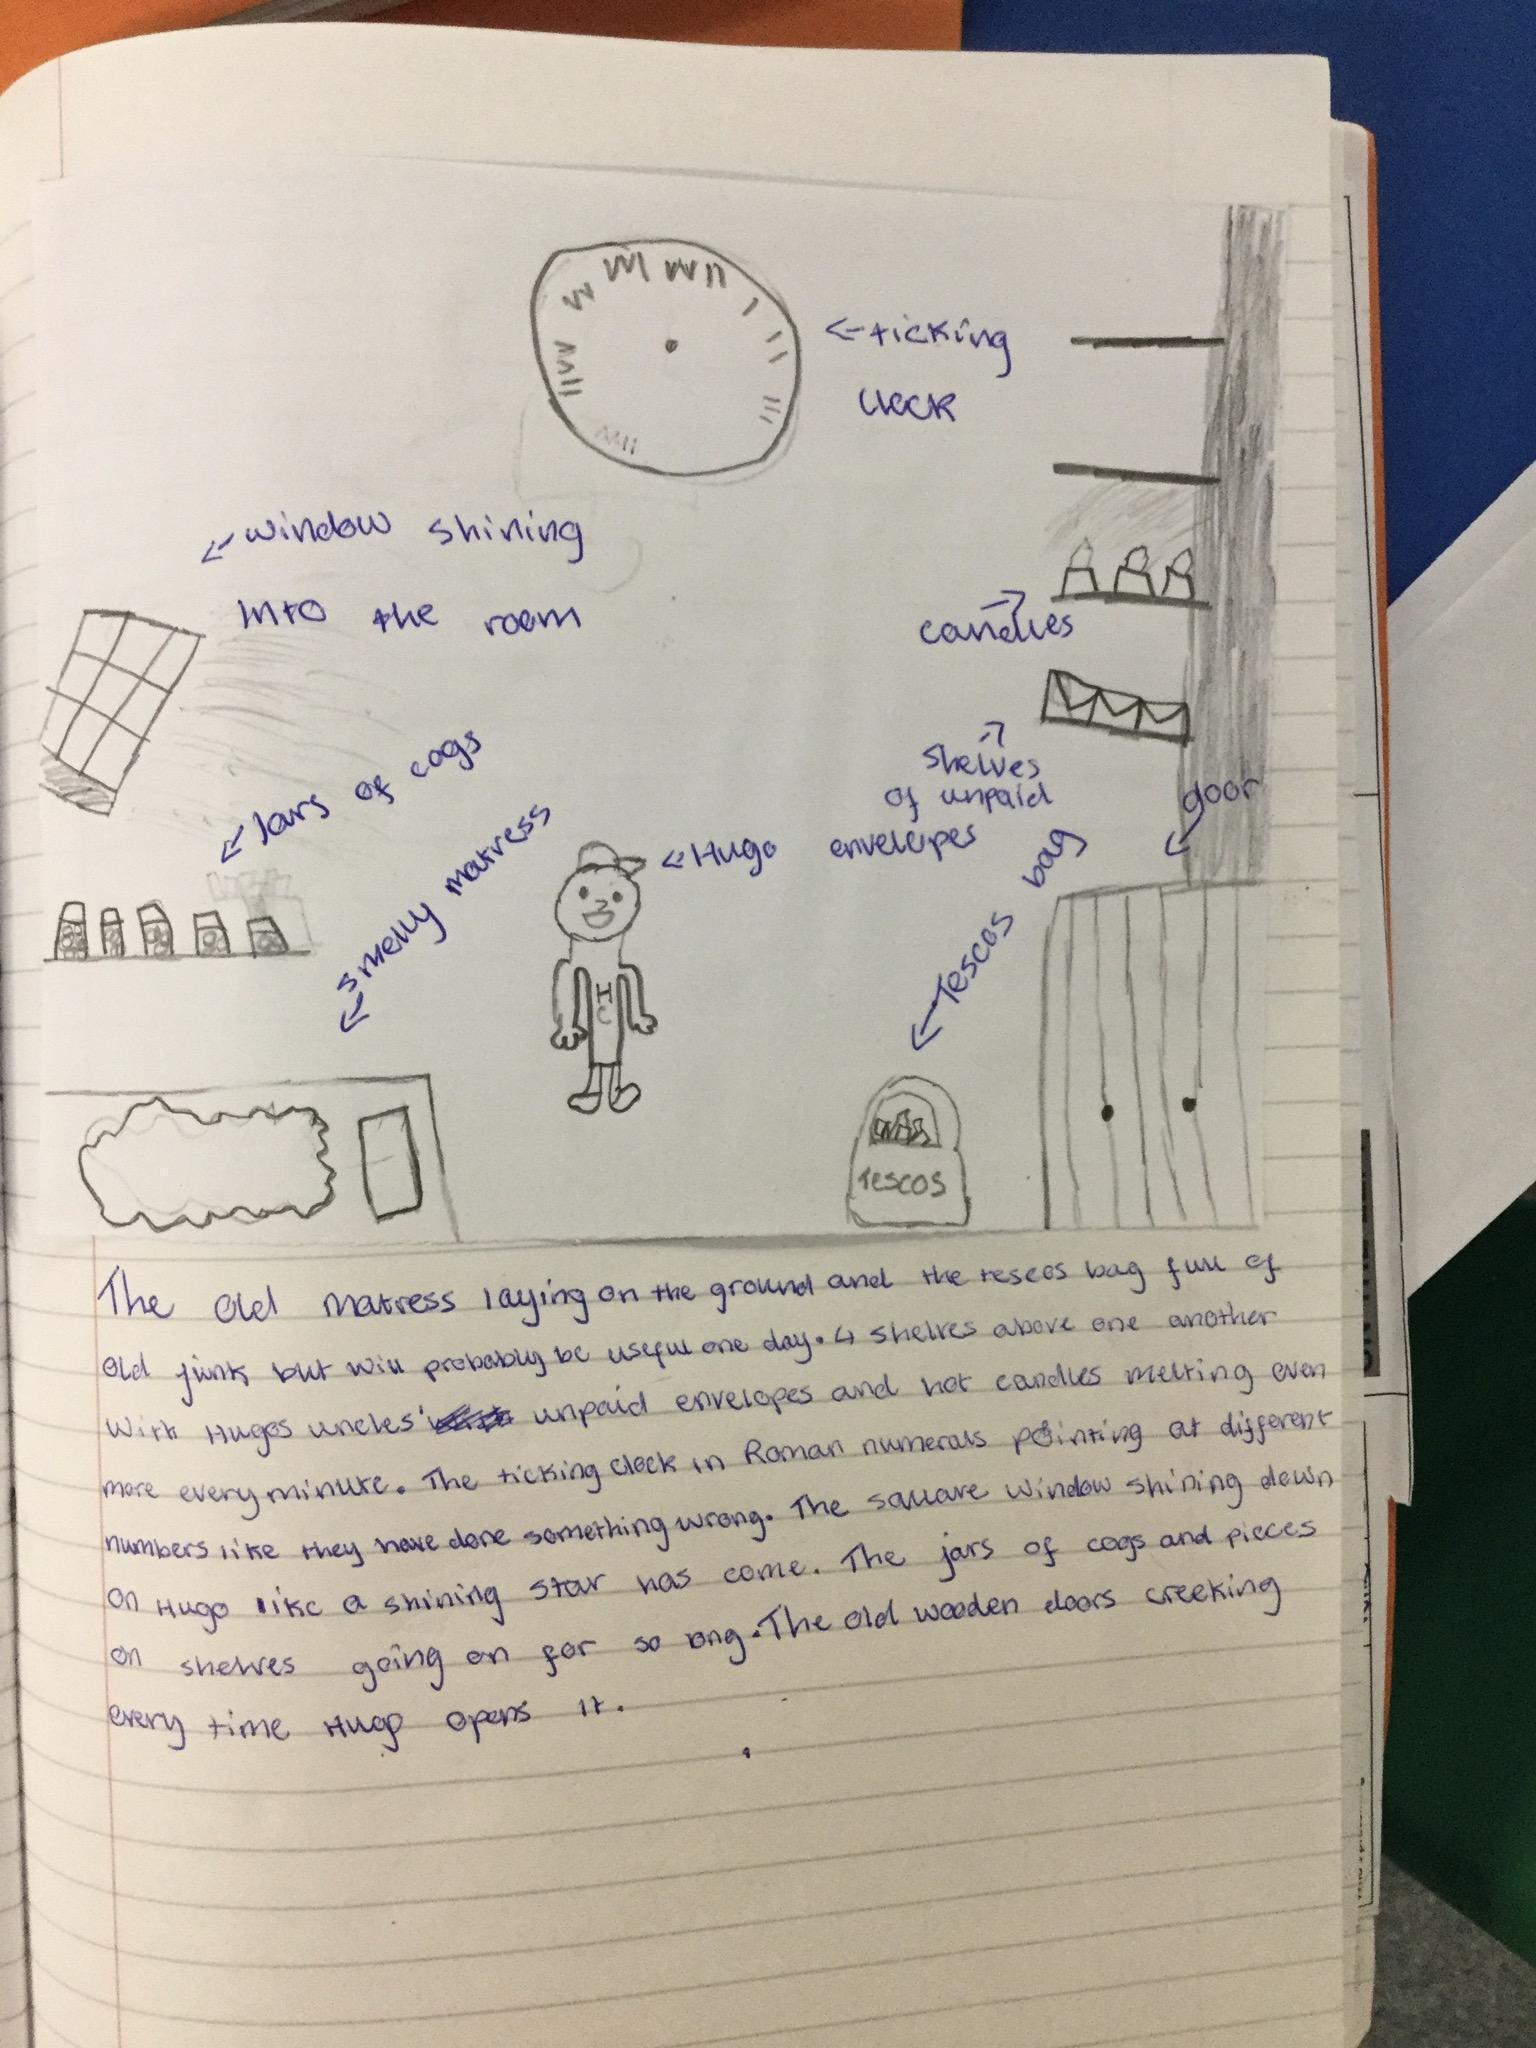 ←ticking
clock
←window shining
into the room
candles
←Jars of cogs
shelves
of unpaid
envelopes
door
←Hugo
←smelly matress
←Tescos bag
H
C
Tescos
The old matress laying on the ground and the tescos bag full of
old junk but will probably be useful one day. 4 shelves above one another
with Hugos uncles' unpaid envelopes and hot candles melting even
more every minute. The ticking clock in Roman numerals pointing at different
numbers like they have done something wrong. The square window shining down
on Hugo like a shining star has come. The jars of cogs and pieces
on shelves going on for so long. The old wooden doors creeking
every time Hugo opens it.